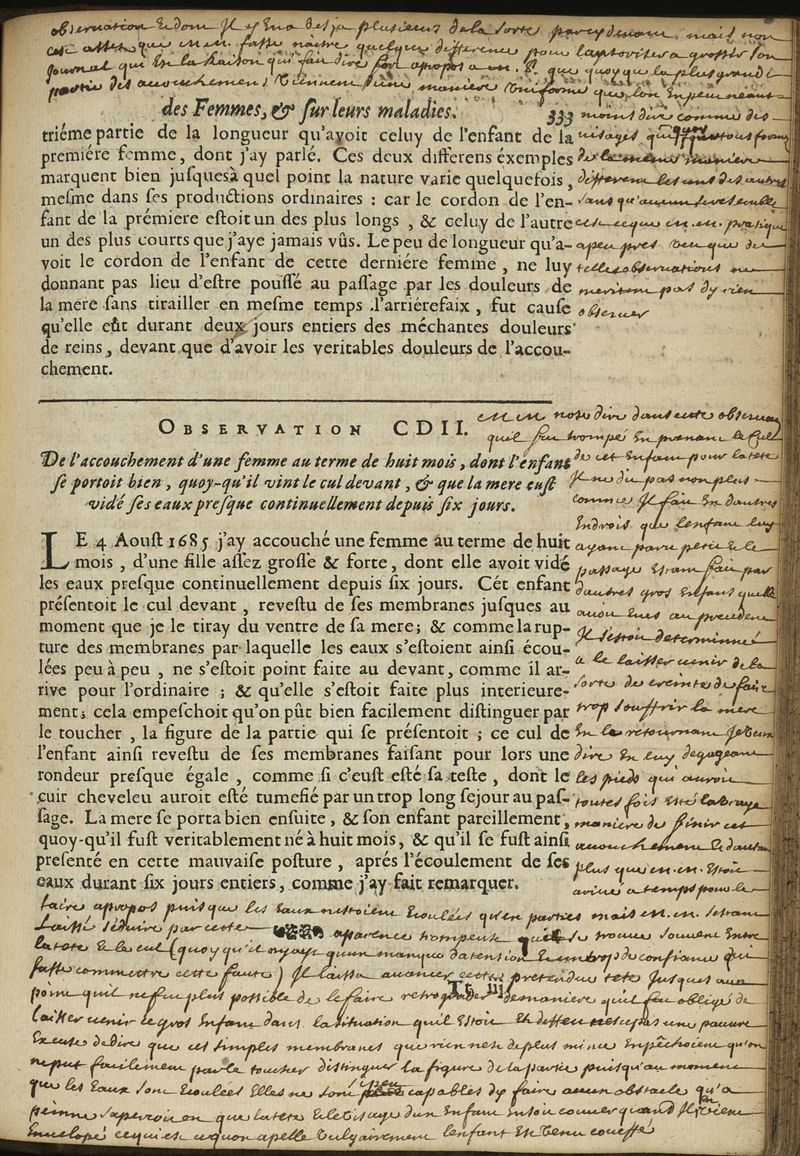 observation & dont Il y En a desja plusieurs de la sorte parcydevant, mais non
est assez que m.m. fasse naitre quelque difference pour l'autoriser a grossir son
Journal qui En la liaison qui fait dire fort apropos a m. P. que quoy que la plus grande
partie des accouchemens viennent d'une maniere uniforme que l'on En peut neant
des Femmes, & ſur leurs maladies. 333
moins dire comme des
triéme partie de la longueur qu'avoit celuy de l'enfant de la
visages qui tous
premiére femme, dont j'ay parlé. Ces deux differens éxemples
de la meme maniere
marquent bien juſquesà quel point la nature varie quelquefois,
different les uns des autres
meſme dans ſes productions ordinaires : car le cordon de l'en-
sans qu'aucun se resemble
fant de la prémiere eſtoit un des plus longs , & celuy de l'autre
c'est ce que m. m. pratique
un des plus courts que j'aye jamais vûs. Le peu de longueur qu'a-
a peu pres veu que de
voit le cordon de l'enfant de cette derniére femme , ne luy
telles observations ne
donnant pas lieu d'eſtre pouſſé au paſſage par les douleurs de
meritent pas d'y rien
la mere ſans tirailler en meſme temps l'arriérefaix , fut cauſe
observer
qu'elle eût durant deux jours entiers des méchantes douleurs
de reins, devant que d'avoir les veritables douleurs de l'accou-
chement.
m m nose dire dans cette observaon
OBSERVATION CDII.
quil fut trompé En prenant le Cul
De l'accouchement d'une femme au terme de huit mois, dont l'enfant
de cet Enfant pour la tete
ſe portoit bien, quoy-qu'il vint le cul devant, & que la mere euſt
Il ne dit pas non plus
vidé ſes eaux preſque continuellement depuis ſix jours.
comme Il fait En d'autres
Endrois que l'enfant luy
LE 4 Aouſt 1685 j'ay accouché une femme au terme de huit
ayant paru petit & le
mois , d'une fille aſſez groſſe & forte, dont elle avoit vidé
passage Estant fait par
les eaux preſque continuellement depuis ſix jours. Cét enfant
d'autres gros Enfans quelle
préſentoit le cul devant , reveſtu de ſes membranes juſques au
avoit Eues au precedent
moment que je le tiray du ventre de ſa mere; & comme la rup-
Il s'estoit determinné
ture des membranes par laquelle les eaux s'eſtoient ainſi écou-
a le laisser venir de la
lées peu à peu , ne s'eſtoit point faite au devant, comme il ar-
sorte de creinte de faire
rive pour l'ordinaire ; & qu'elle s'eſtoit faite plus interieure-
trop souffrir la mere
ment; cela empeſchoit qu'on pût bien facilement diſtinguer par
En le retournant Je veux
le toucher , la figure de la partie qui ſe préſentoit ; ce cul de
dire En luy degageant
l'enfant ainſi reveſtu de ſes membranes faiſant pour lors une
les pieds qui auroit
rondeur preſque égale , comme ſi c'euſt eſté ſa teſte , dont le
toutes fois Esté la vraye
cuir cheveleu auroit eſté tumefié par un trop long ſejour au paſ-
maniere de finir cet
ſage. La mere ſe porta bien enſuite, & ſon enfant pareillement,
accouchement & d'autant
quoy-qu'il fuſt veritablement né à huit mois, & qu'il ſe fuſt ainſi
plus que m. m. Estoit
preſenté en cette mauvaiſe poſture , aprés l'écoulement de ſes
arivé a temps pour le
eaux durant ſix jours entiers, comme j'ay fait remarquer.
faire apropos puisque les Eaux nestoient Ecoulées qu'en parties mais m. m. s'etant
laissé seduire par cette aparence trompeuse qui se trouve souvent Entre
la tete & le cul (quoy qu'il n'y ayt qu'un manque d'atention & un trop de confiance qui
fasse commettre cette faute) Il laissa avancer cette pretendue tete Jusques au
Tt iij
point quil ne fut plus possible de le faire retrograder de maniere qu'il fut obligé de
laisser venir ce gros Enfant dans la situation qu'il Estoit Et c'est une pauvre
Excuse de dire que ces simples membranes que rien nest de plus mince Empêchoient qu'on
ne put facilement par le toucher distinguer la figure de la partie puisqu'au moment
que les Eaux sont Ecoulées Elles ne sont si peu capables d'y faire aucun obstacle qu'a
peinne s'apercoit on que la tete & le visage d'un Enfant En soit couvert quand Il vient
Envelopé ce qui est ce qu'on apelle vulgairement l'enfant Est venu coueffé